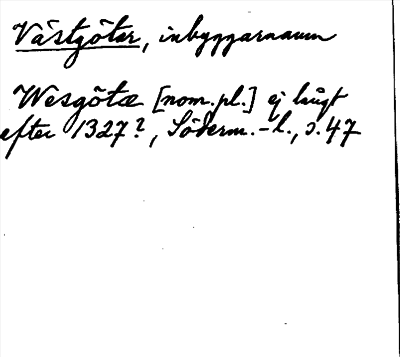 Västgötar, inbyggarnamn
Wesgötæ [nom.pl.] ej långt
efter 1327?, Söderm.-l., s. 47